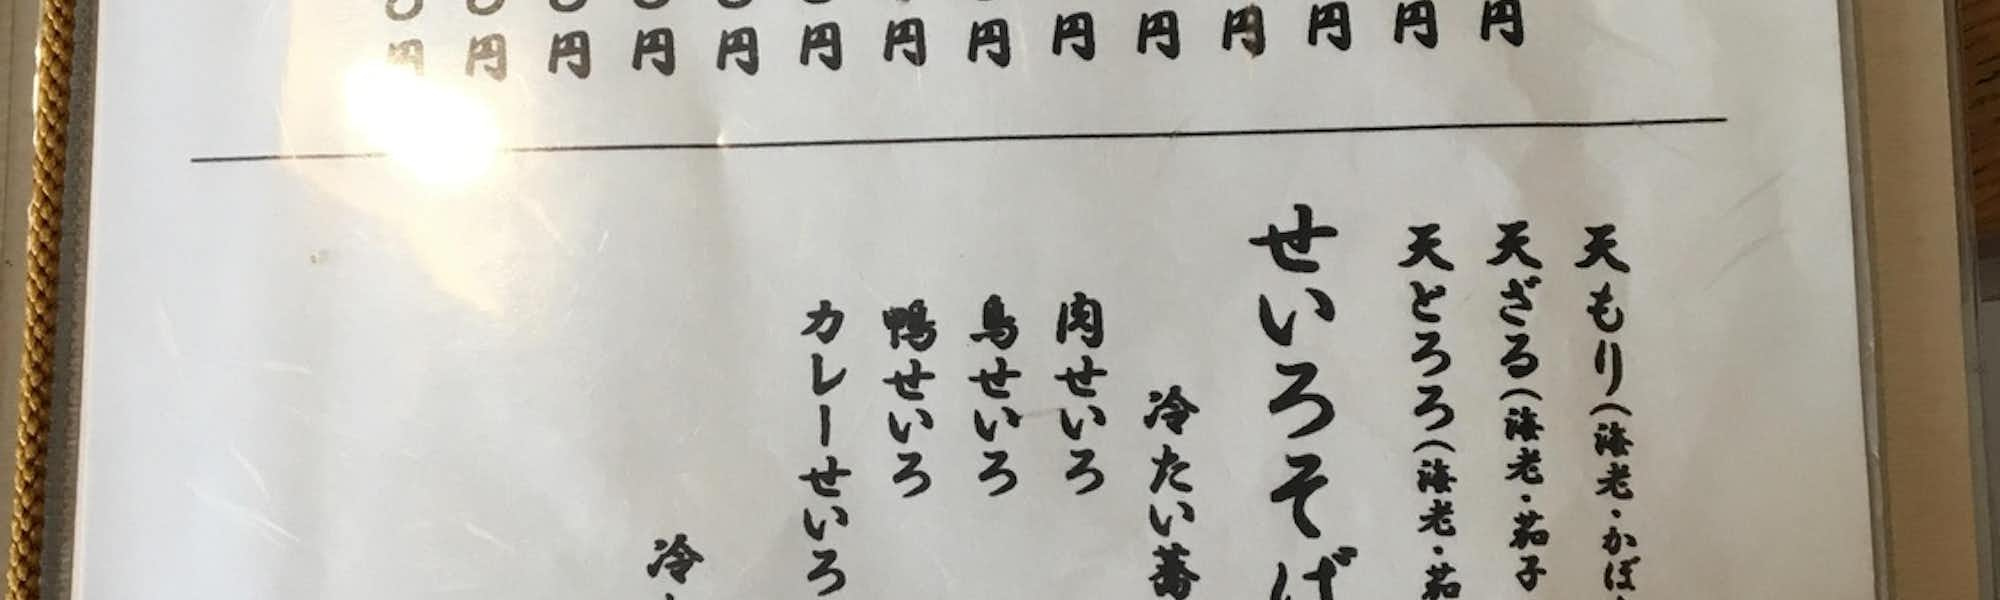 円
円
円
円
円
円
円
円
円
円
円
円
円
円
天もり(海老・かぼ
天ざる(海老・茄子
天とろろ(海老・茄
せいろそば
冷たい蕎
肉せいろ
鳥せいろ
鴨せいろ
カレーせいろ
冷